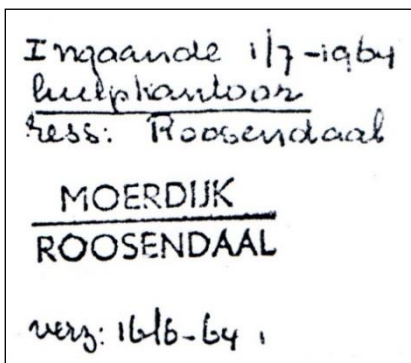 Ingaande 1/7-1964
hulpkantoor
ress: Roosendaal
MOERDIJK
ROOSENDAAL
verz: 16/6-64